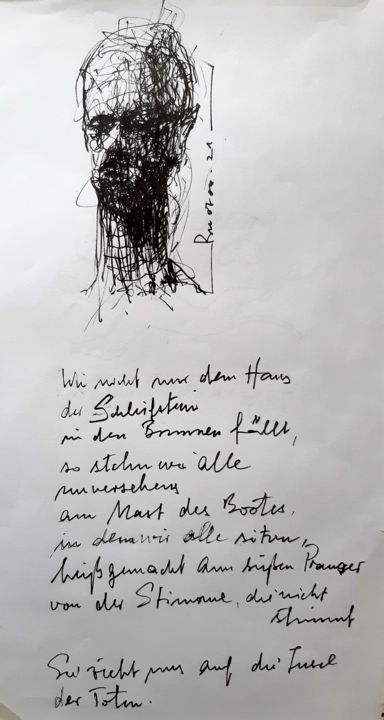 Wie nicht nur dem Hans
der Schleifstein
in den Brunnen fällt,
so stehn wir alle
unversehens
am Mast des Bootes,
in dem wir alle sitzen,
heiß gemacht am süßen Pranger
von der Stimme, die nicht
stimmt
Sie zieht uns auf die Insel
der Toten.